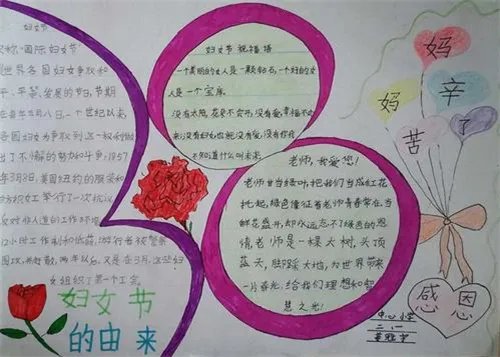 妇女节
又称"国际妇女节
到世界各国妇女争取和
平、平等、发展的节日,节期
在每年三月八日,一个世纪以来,
各国妇女争取到这一权利做
出了不懈的努力和斗争,1957
年3月8日,美国纽约的服装和
纺织女工举行了一次抗议
反对非人道的工作环境
12小时工作制和低薪,游行者被警察
围攻,并赶散,两年以后,又是在3月,这些妇
女组织了第一个工会
妇女节
的由来
妇女节 祝福语
一个美丽的女人是一颗钻石,一个好的女
人是一个宝库
没有太阳,花朵不会开,没有爱,幸福不会
来,没有妇女也就没有爱,没有你我
不知道什么叫未来,
老师,我爱您!
老师甘当绿叶,把我们当成红花
托起,绿色象征着老师青春常在,当
鲜花盛开,却永远忘不了绿色的恩
情,老师是一棵大树,头顶
蓝天,脚踩大地,为世界带来
一片春光,给我们理想和智
慧之光!
妈妈辛苦了
感恩
中心小学
二.1